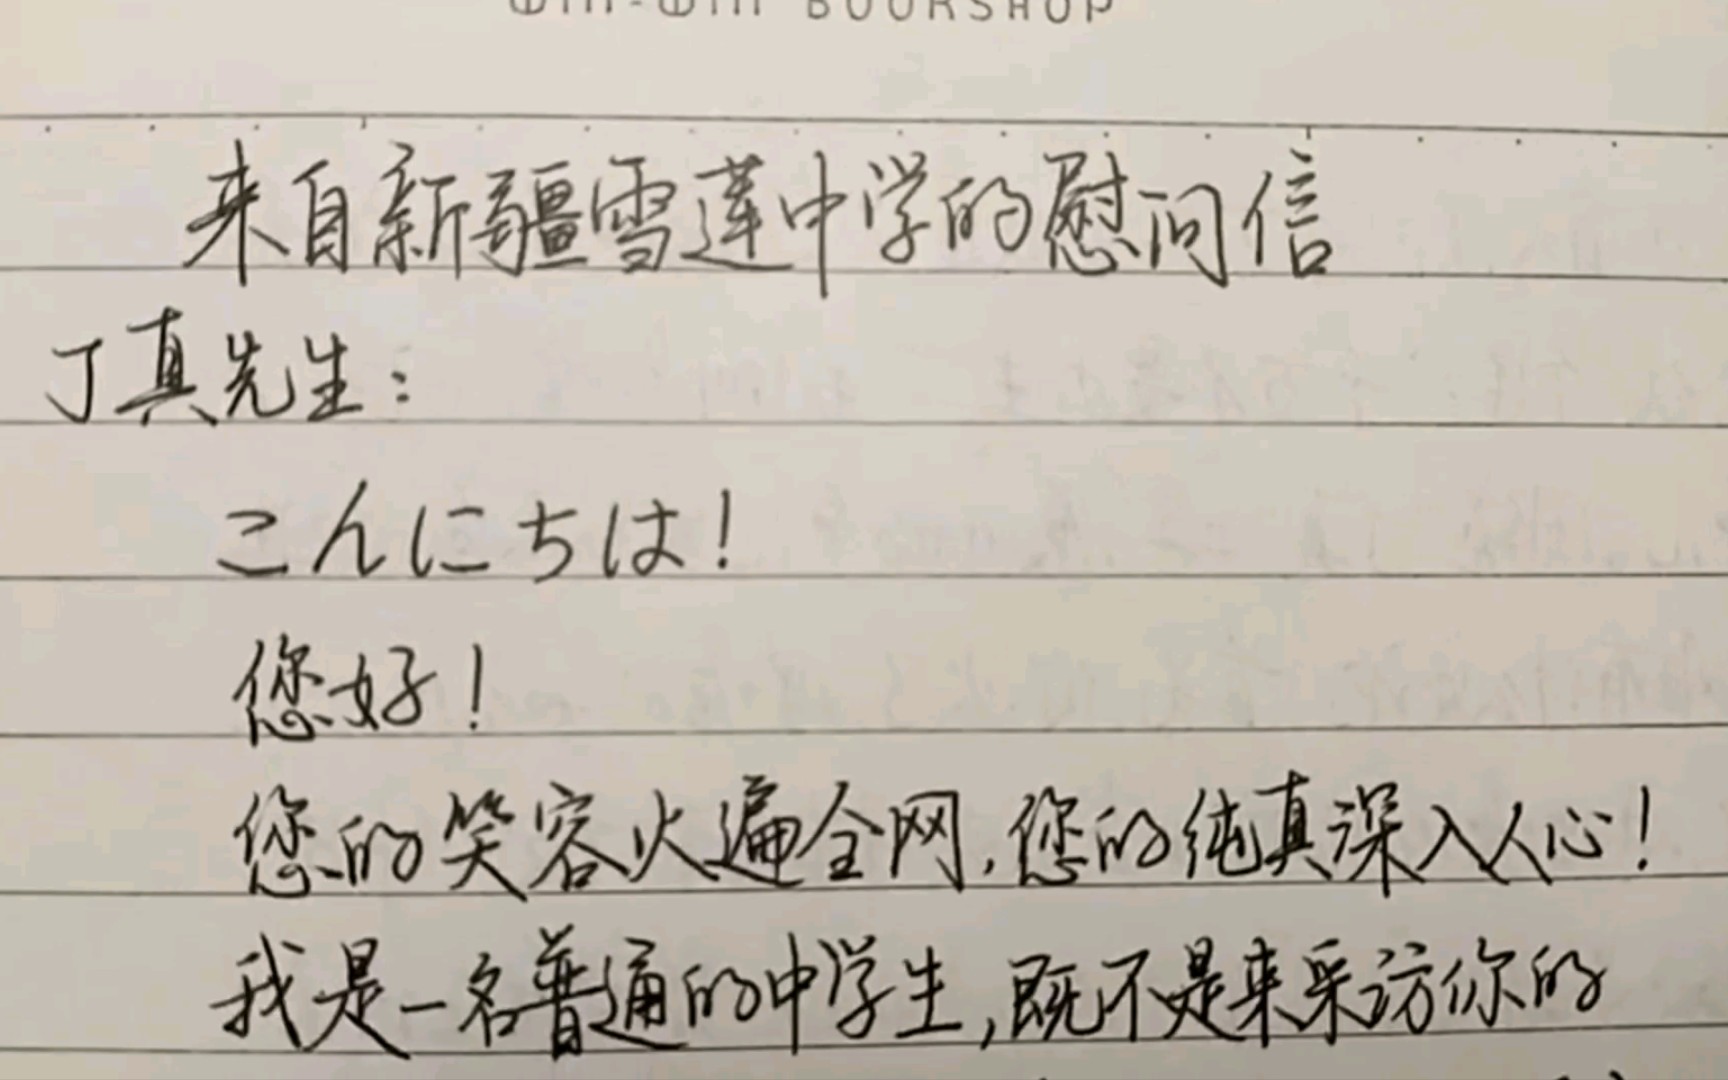 BOOKSHOP
来自新疆雪莲中学的慰问信
丁真先生：
こんにちは！
您好！
您的笑容火遍全网，您的纯真深入人心！
我是一名普通的中学生，既不是来采访你的